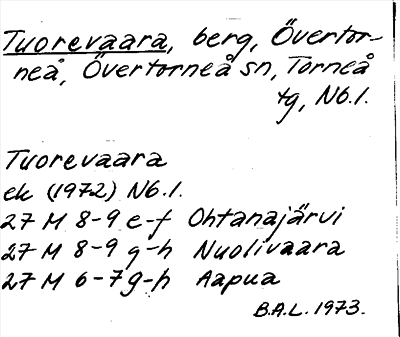 Tuorevaara, berg, Övertor-
neå, Övertorneå sn, Torneå
tg, Nb.l.
Tuorevaara
ek (1972) Nb.l.
27 M 8-9 e-f Ohtanajärvi
27 M 8-9 g-h Nuolivaara
27 M 6-7 g-h Aapua
B.A.L. 1973.